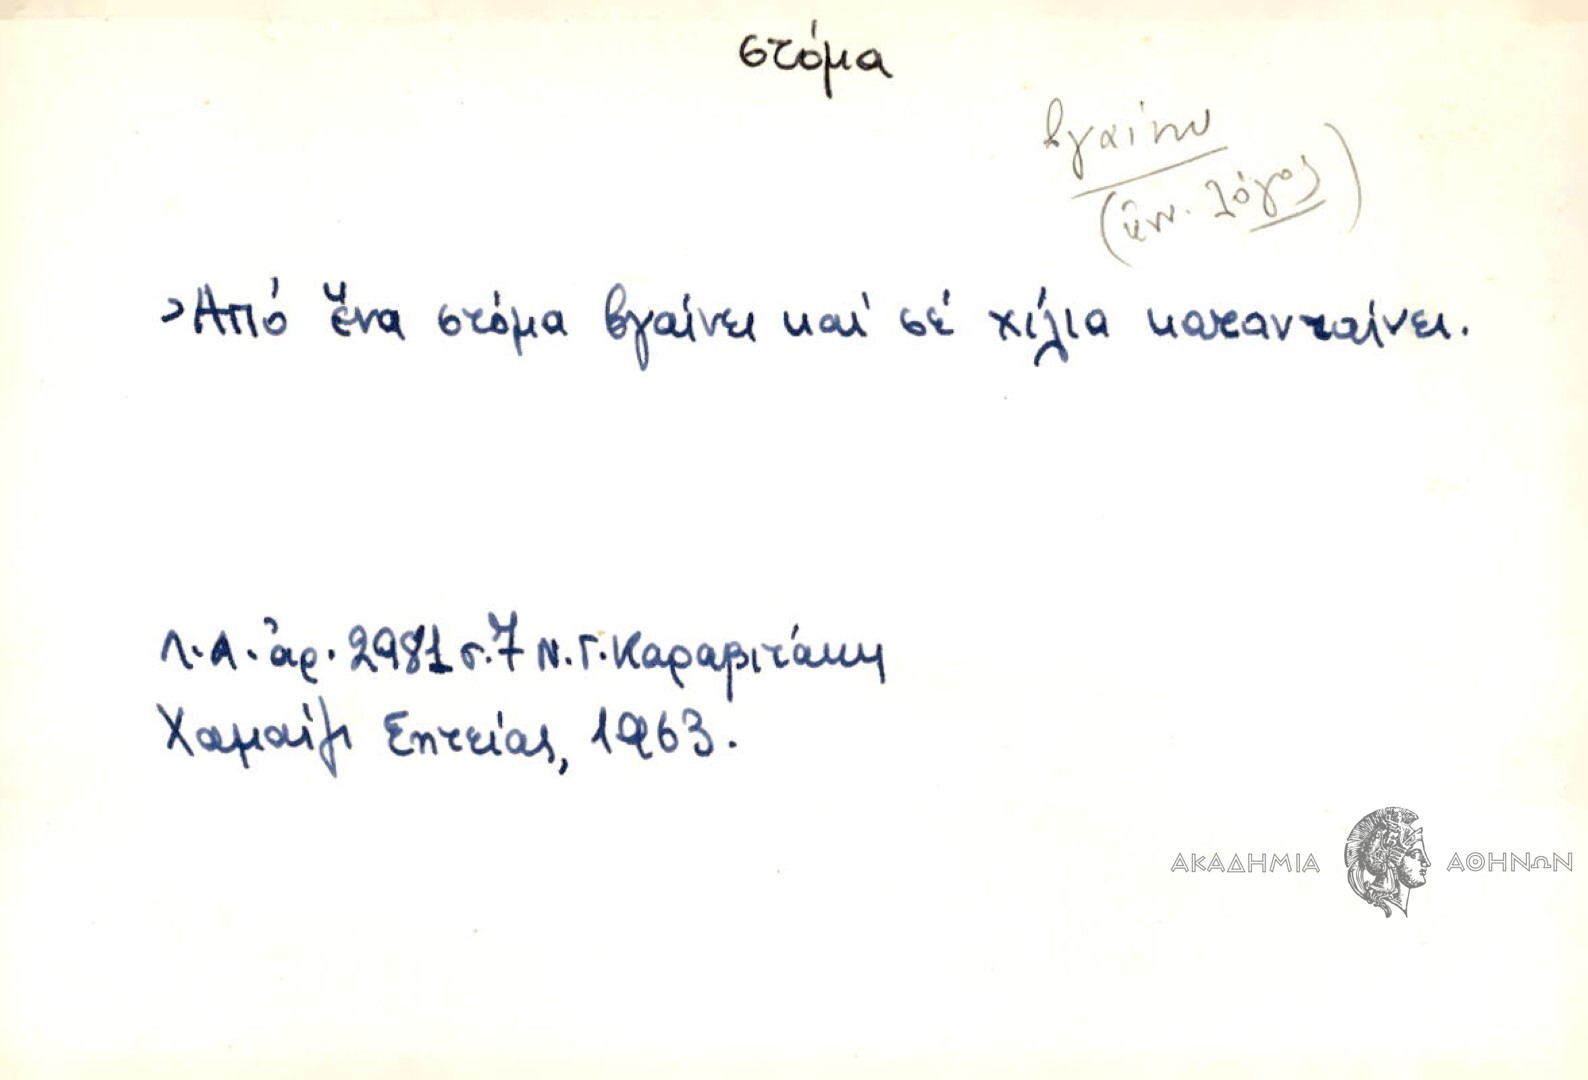 στόμα
βγαίνω
(ἐνν. λόγος)
Ἀπό ἕνα στόμα βγαίνει καί σέ χίλια καταντaίνει.
Λ.Α. ἀρ. 2981 σ.7 Ν.Γ. Καραβιτάκη
Χαμαίζι Σητείας, 1963.
ΑΚΑΔΗΜΙΑ ΑΘΗΝΩΝ